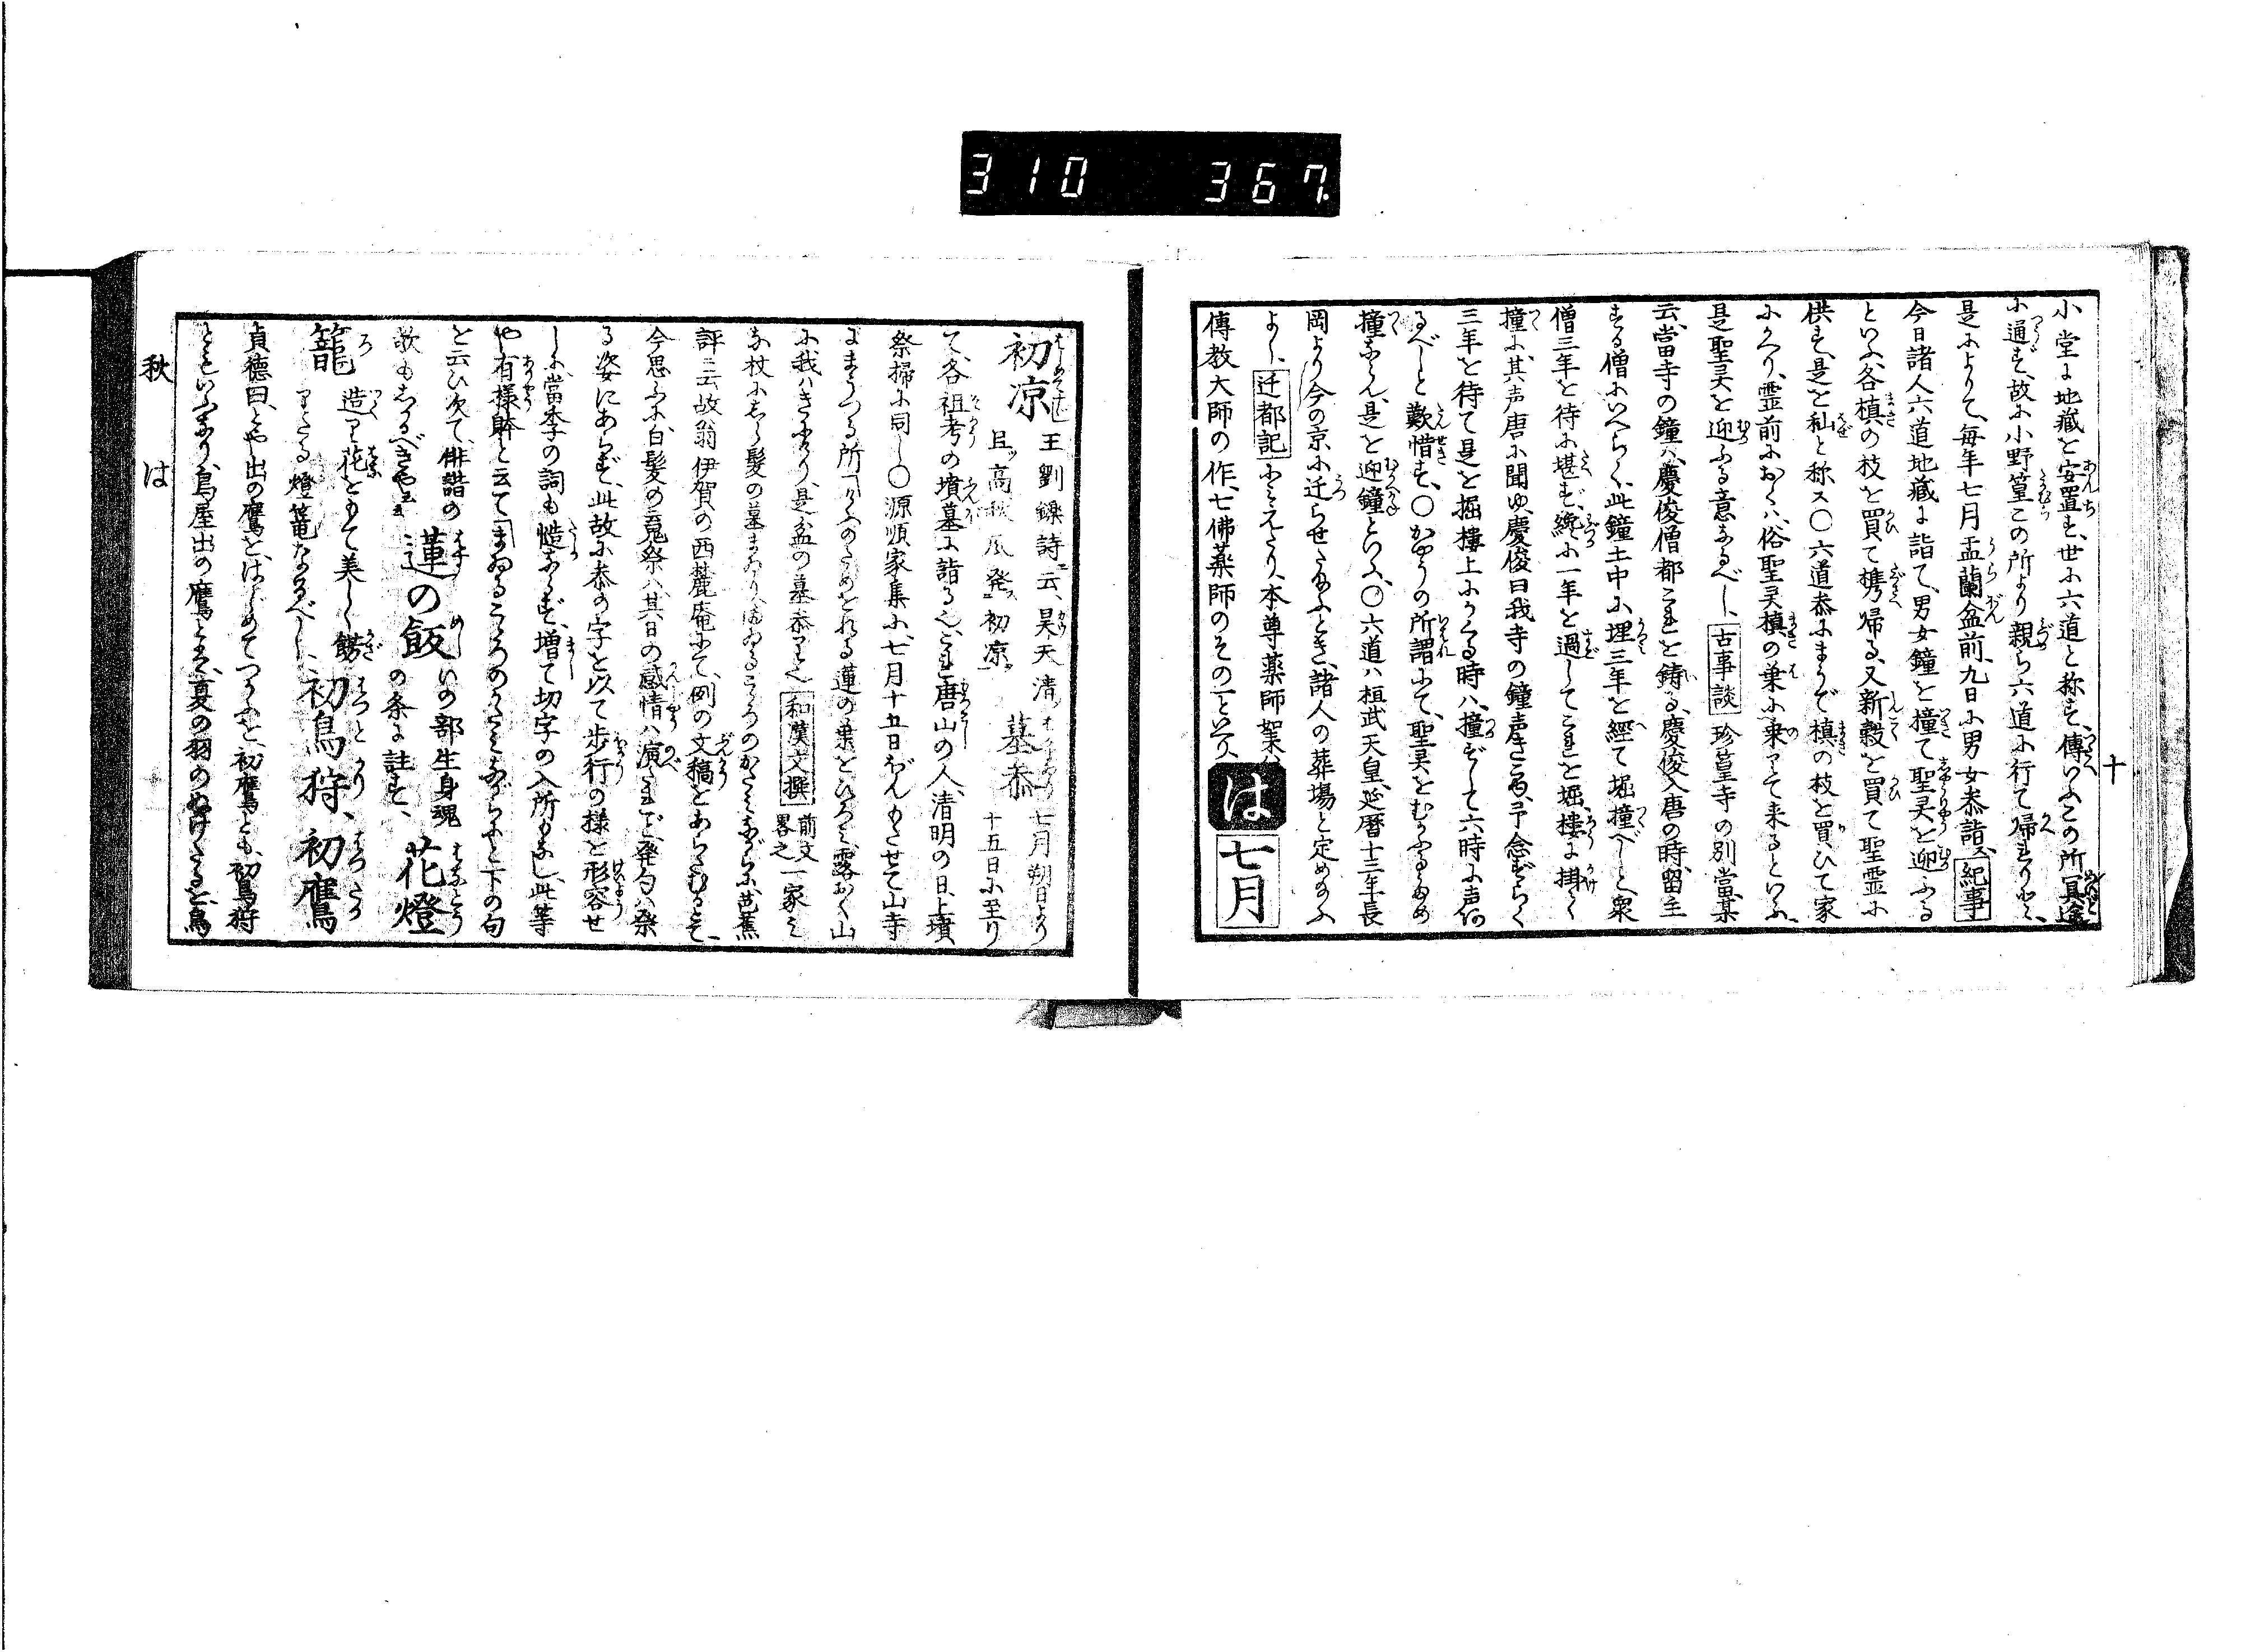 310 367
十
小堂に地藏を安置す、世に六道と称す、傳いふこの所冥途
に通ず、故に小野篁この所より親ら六道に行て帰れりと、
是によりて、毎年七月盂蘭盆前、九日に男女参詣ス、紀事
今日諸人六道地藏に詣て、男女鐘を撞て聖灵を迎ふる
といふ、各槙の枝を買て携帰る、又新穀を買て聖霊に
供す、是を と称ス〇六道参にまうで槙の枝を買ひて家
にかへり、霊前におくハ、俗聖灵槙の葉に乗りて来るといふ、
是聖灵を迎ふる意なるべし、古事談 珍篁寺の別當某
云、當寺の鐘ハ慶俊僧都これを鋳る、慶俊入唐の時、留主
する僧にいへらく、此鐘土中に埋三年を經て堀撞べしと、衆
僧三年を待に堪ず、纔に一年を過してこれを堀、樓に掛く
撞に、其声唐に聞ゆ、慶俊曰我寺の鐘声きこゆ、予念ずらく
三年を待て是を掘樓上にかくる時ハ、撞ずして六時に声有
るべしと歎惜す、〇かやうの所謂にて、聖灵をむかふるため
撞ならん、是を迎鐘といふ、〇六道ハ桓武天皇、延暦十三年長
岡より今の京に迁らせたまふとき、諸人の葬場を定めのふ
よし、迁都記にみえたり、本尊薬師如来ハ
傳教大師の作、七佛薬師のその一といへり は 七月
初凉 王劉鑠詩ニ云、昊天清 且ッ高秋風発ッ初凉ヲ 墓参 七月朔日より十五日に至り
て、各祖考の墳墓に詣る也、これ唐山の人、清明の日、上墳、
祭掃に同し〇源順家集に、七月十五日ぼんもたせて山寺
にまうつる所「けふのためとれる蓮の葉をひろみ露おく山
に我ハきにけり、是盆の墓参りと也 和漢文撰 前文畧之 一家ミ
な杖にしら髪の墓まゐり ハまゐるこゝろのかたミながらに、芭蕉
評ニ云故翁伊賀の西麓庵にて、例の文稿をあらたむるとて、
今思ふに、白髪の䰟祭ハ、其日の感情ハ演たれど、発句ハ祭
る姿にあらず、此故に参の字を以て歩行の様を形容せ
しに、當季の詞も慥ならず、増て切字の入所もなし、此等
や有様躰と云て「まゐるこゝろのかたミながらにと下の句
を云ひ次て、俳諧の歌もしるべきや云云 蓮の飯 いの部生身魂の条に註す、 花燈
籠 造り花をもて美しく餝りたる燈篭なるべし、 初鳥狩、初鷹
貞徳曰、とや出の鷹を、はじめてつかふを、初鷹とも、初鳥狩
ともいふなり、鳥屋出の鷹とハ、夏の羽のぬけたるを、鳥
秋 は